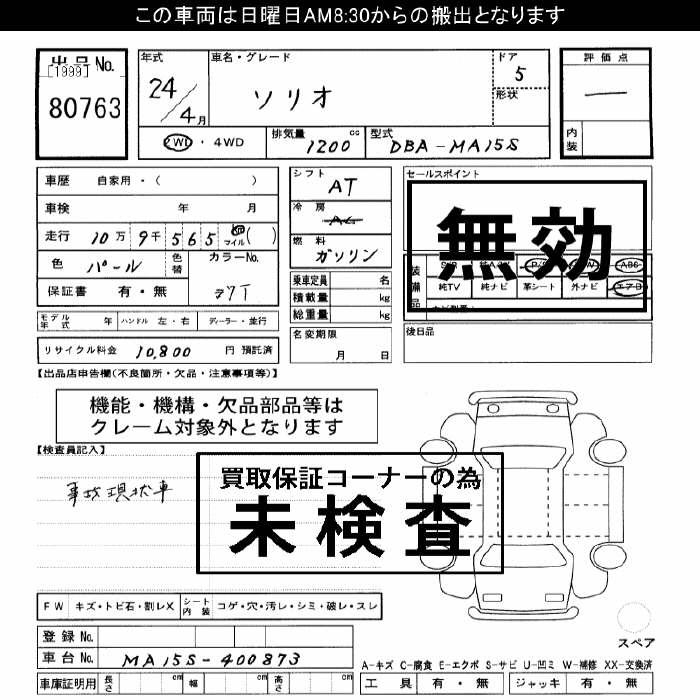 この車両は日曜日AM8:30からの搬出となります
出品No.
[1999]
80763
年式
24/4月
車名・グレード
ソリオ
ドア
5
形状
評価点
―
内装
2WD・4WD
排気量
1200 cc
型式
DBA-MA15S
車歴 自家用・( )
車検 年 月
走行 10万9千565 マイル( )
色 パール 色替 カラーNo.
保証書 有・無 Z7T
シフト
AT
冷房
AC
燃料
ガソリン
乗車定員 名
積載量 kg
総重量 kg
セールスポイント
無効
装備品
純TV 純ナビ 革シート 外ナビ エアB
モデル年式 年 ハンドル 左・右 ディーラー・並行
名変期限
月 日
後日品
リサイクル料金 10,800 円 預託済
【出品店申告欄(不良箇所・欠品・注意事項等)】
機能・機構・欠品部品等は
クレーム対象外となります
【検査員記入】
事故現状車
買取保証コーナーの為
未検査
FW キズ・トビ石・割レX シート内装 コゲ・穴・汚レ・シミ・破レ・スレ
スペア
登録No.
車台No. MA15S-400873
A-キズ C-腐食 E-エクボ S-サビ U-凹ミ W-補修 XX-交換済
車庫証明用 長さ cm 幅 cm 高さ cm
工具 有・無 ジャッキ 有・無